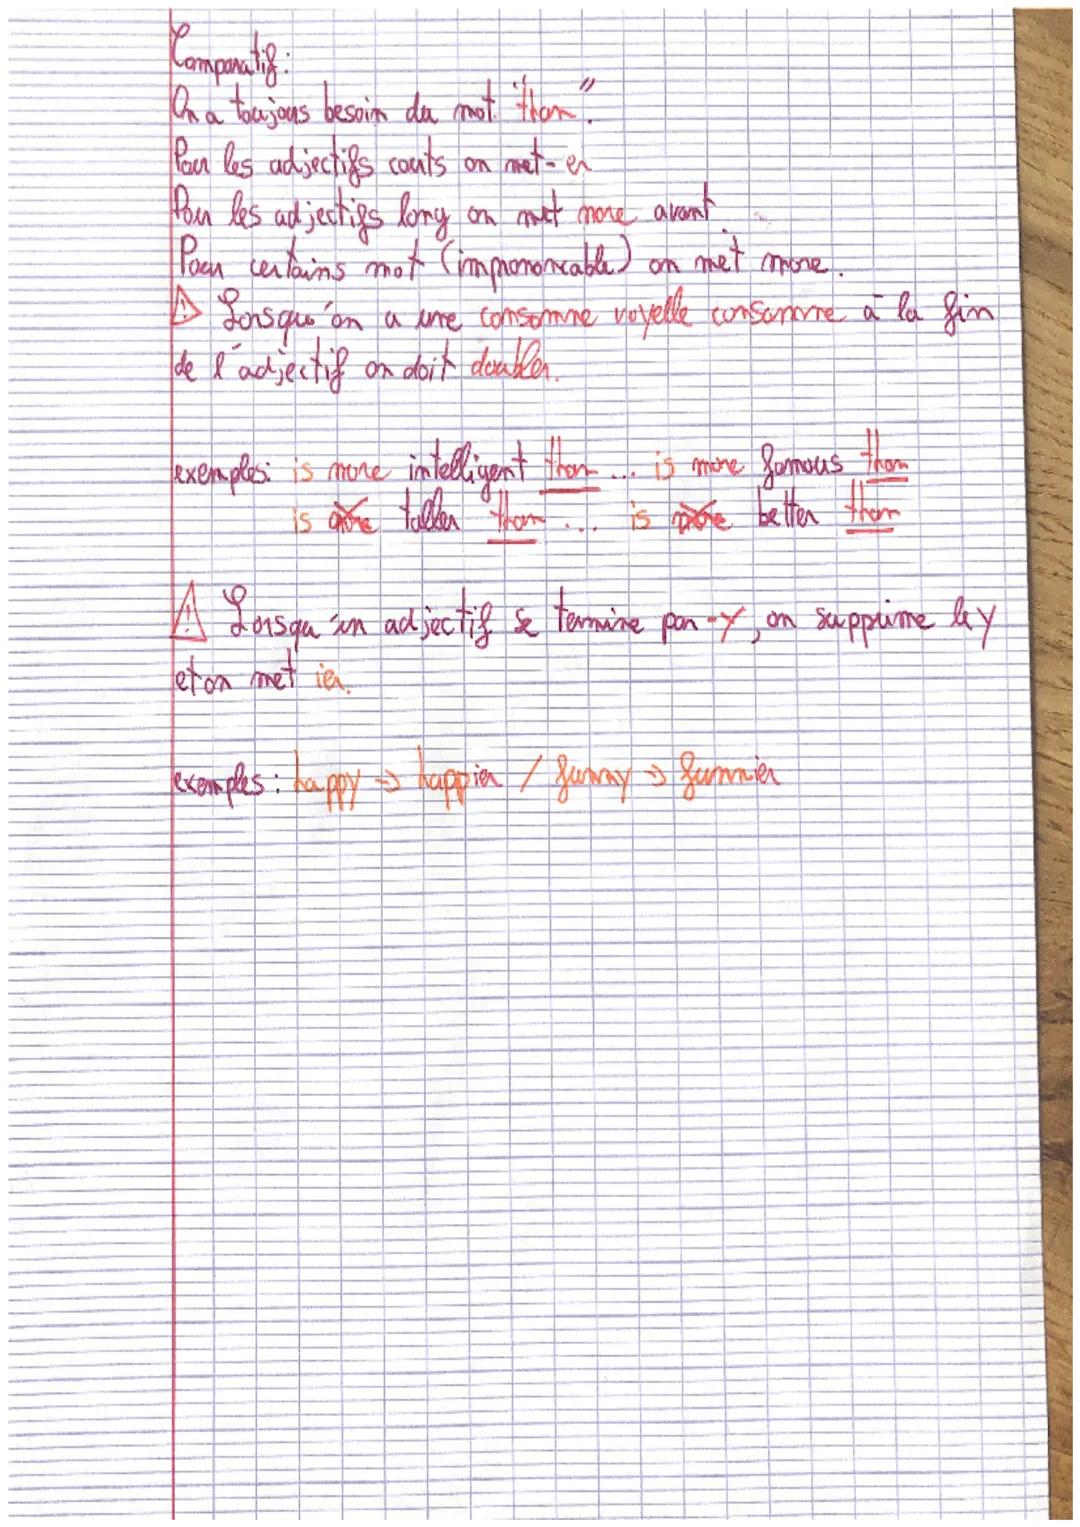 Comparatif:
On a toujours besoin du mot "than".
Pour les adjectifs courts on met -er
Pour les adjectifs long on met more avant
Pour certains mot (imprononcable) on met more.
⚠ Lorsqu'on a une consonne voyelle consonne à la fin
de l'adjectif on doit doubler.
exemples: is more intelligent than ... is more famous than
is more taller than ... is more better than
⚠ Lorsqu'un adjectif se termine par -y, on supprime le y
et on met ier.
exemples: happy → happier / funny → funnier